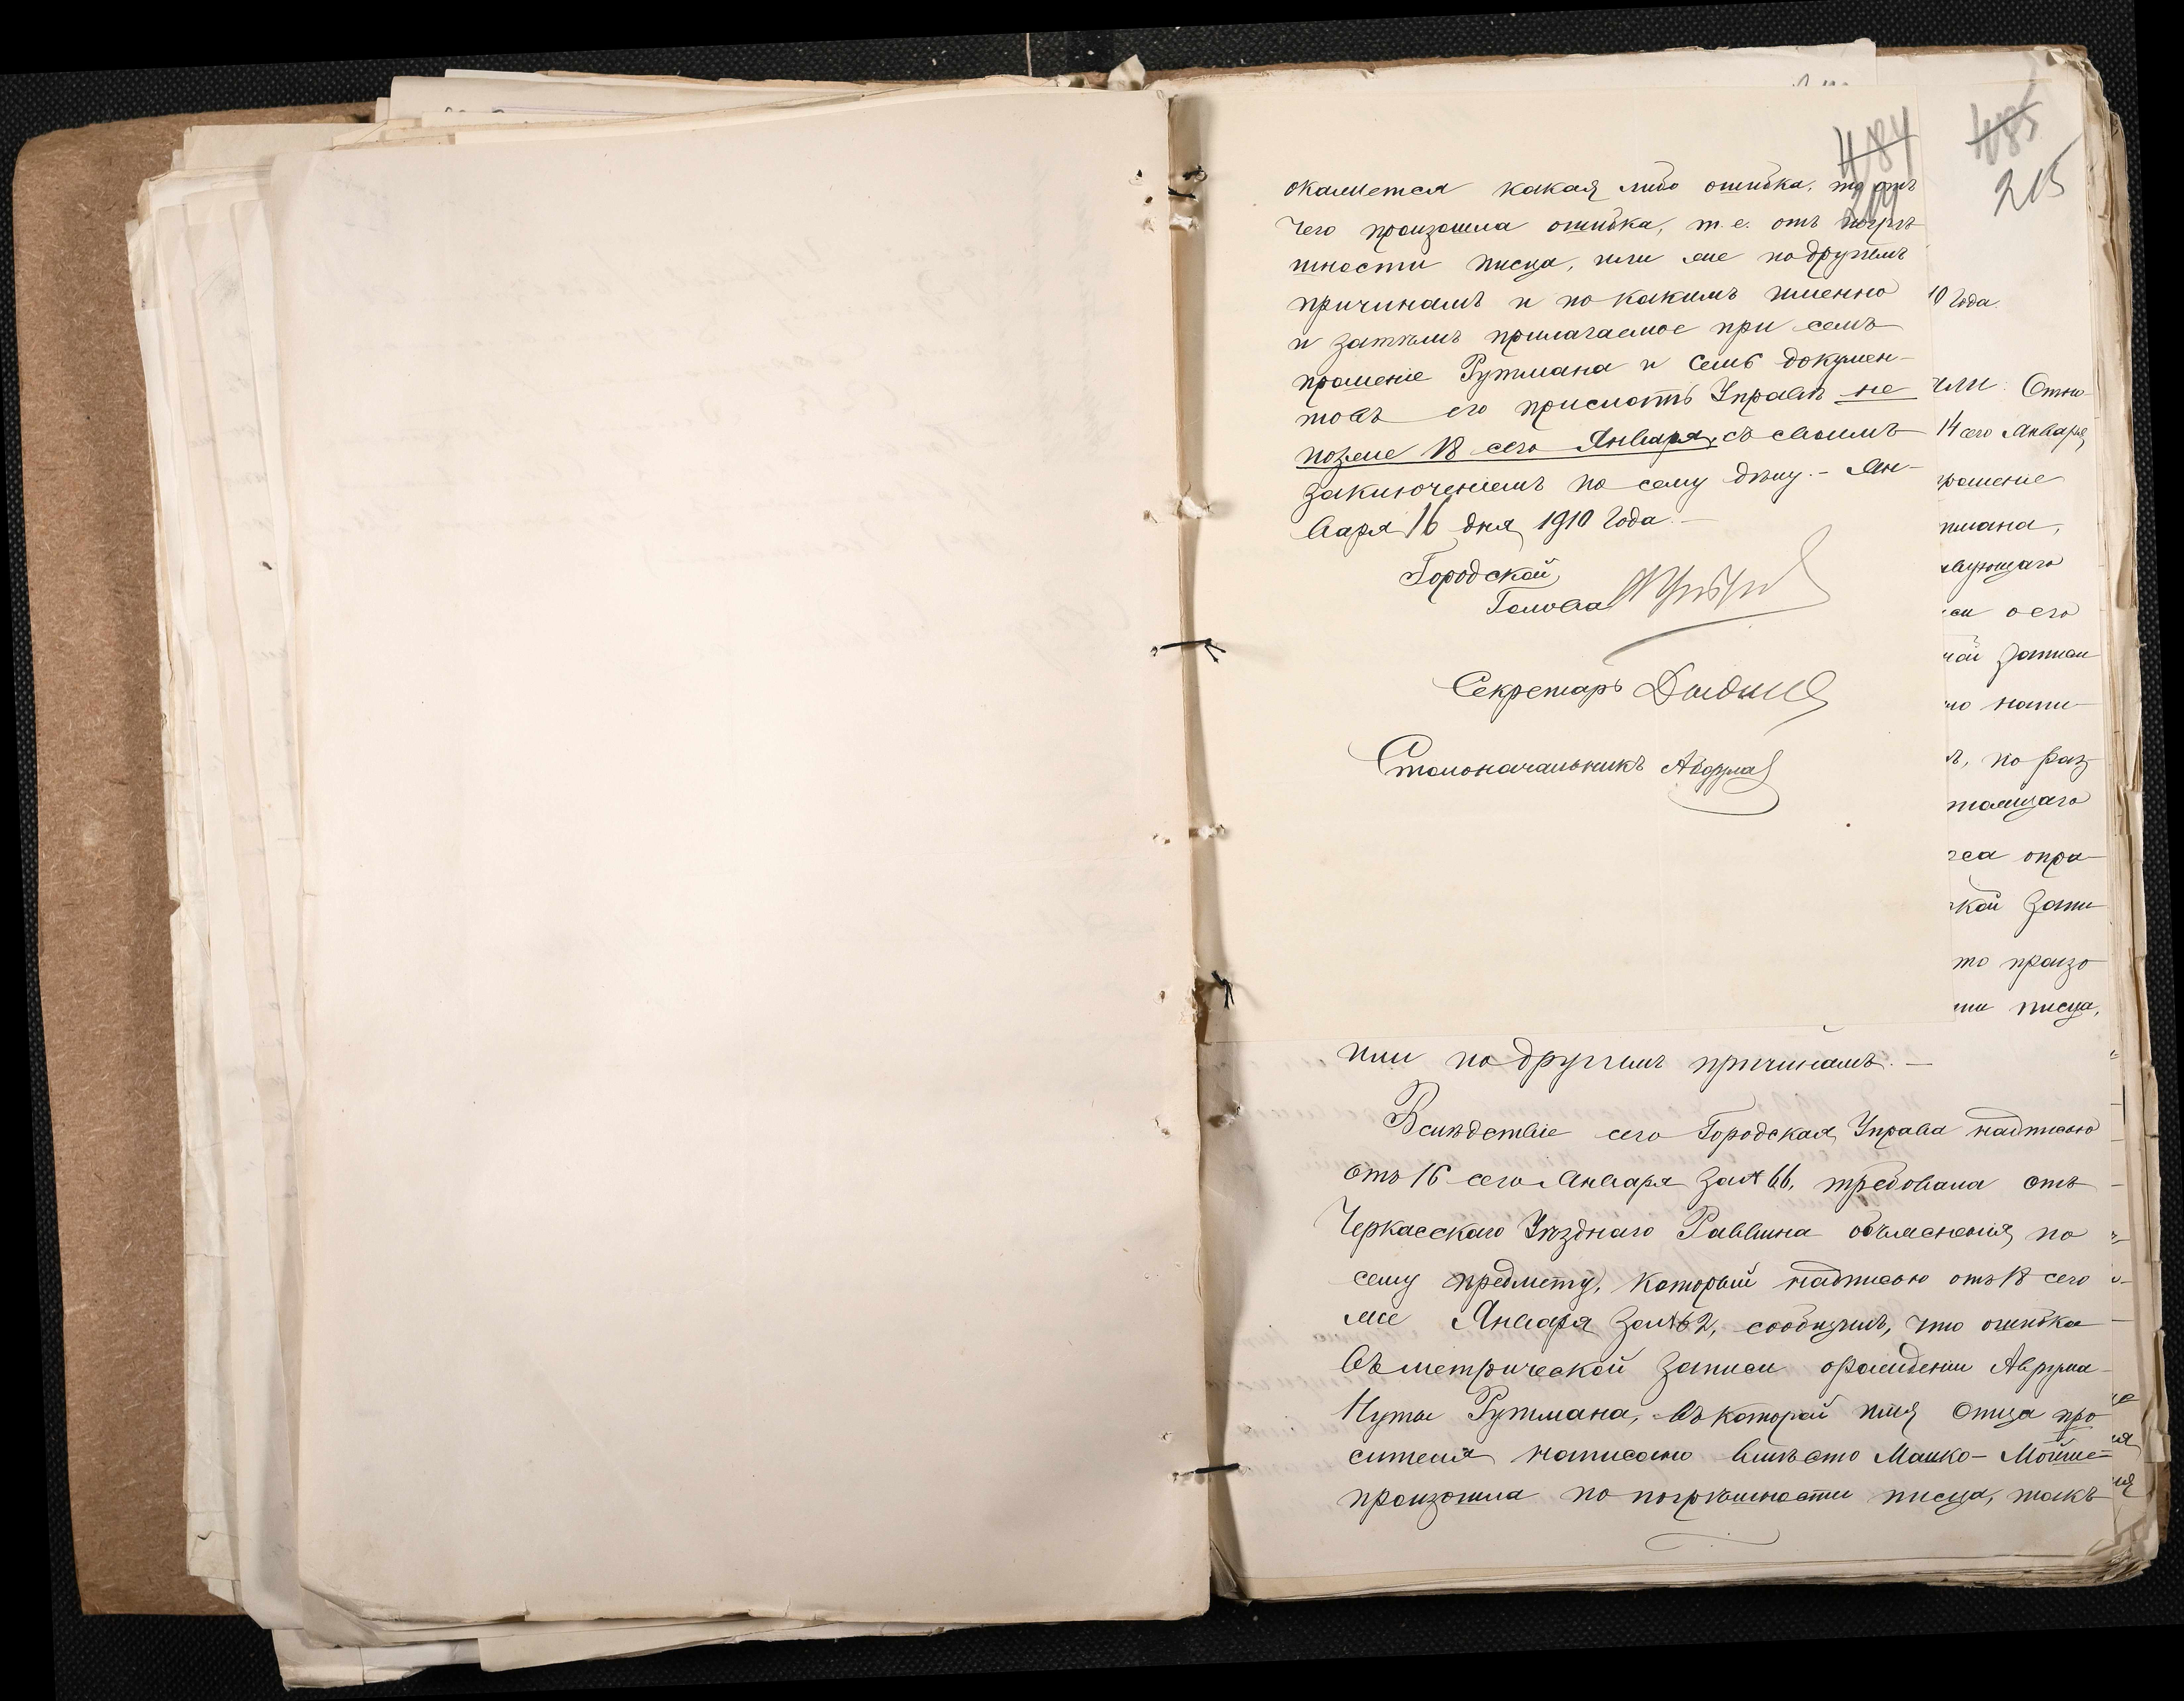 484
214
окажется какая либо ошибка, то отъ
чего произошла ошибка, т.е. отъ погрѣ
шности писца, или же по другимъ
причинамъ и по какимъ именно
и затѣмъ прилагаемое при семъ
прошеніе Рутмана и семь докумен-
товъ его прислать Управѣ не
позже 18 сего Января, съ своимъ
заключеніемъ по сему дѣлу. - Ян-
варя 16 дня 1910 года. -
Городской
Голова
Секретарь
Столоначальникъ
485
215
10 года.
или. Отно
14 сего Января,
прошеніе
тмана,
вующаго
си о его
кой записи
но напи-
ъ, по раз
тоящаго
са опра-
ской запи
то произо
ти писца,
или по другимъ причинамъ. -
Вслѣдствіе сего Городская Управа надписью
отъ 16 сего Января за № 66, требовала отъ
Черкасскаго Уѣзднаго Раввина объясненія по
сему предмету, который надписью отъ 18 сего
же Января за № 62, сообщилъ, что ошибка
въ метрической записи о рожденіи Аврума
Нуты Рутмана, въ которой имя отца про
сителя написано вмѣсто Машко - Мойше -
произошла по погрѣшности писца, такъ